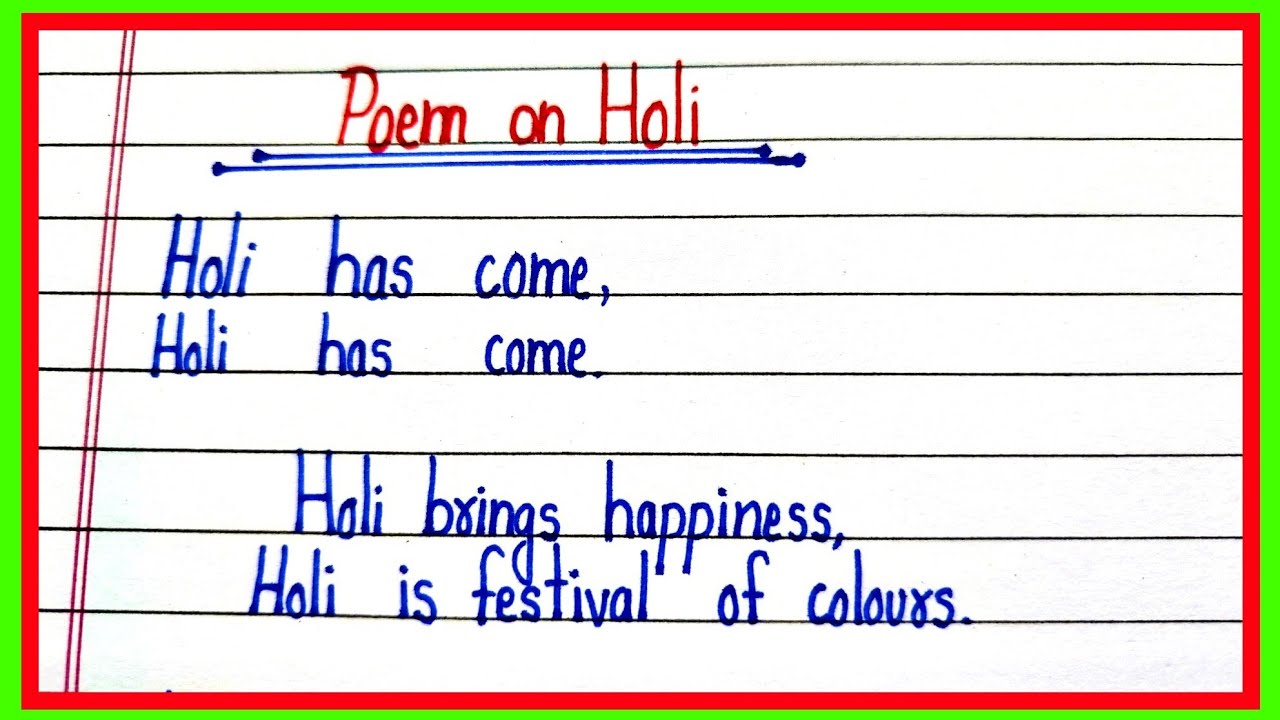 Poem on Holi
Holi has come,
Holi has come.
Holi brings happiness,
Holi is festival of colours.